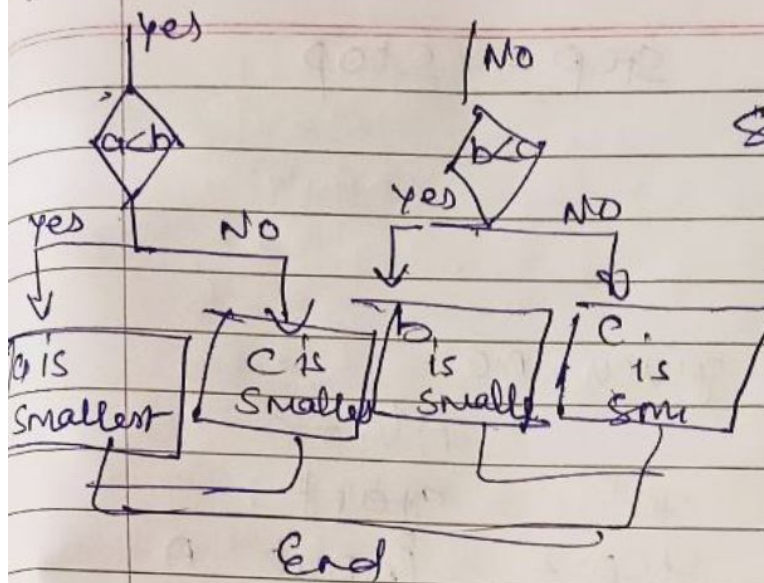 Yes
NO
a<b
b<c
yes
NO
yes
NO
a is
smallest
c is
smalles
b
is
smalle
c.
is
sma
End